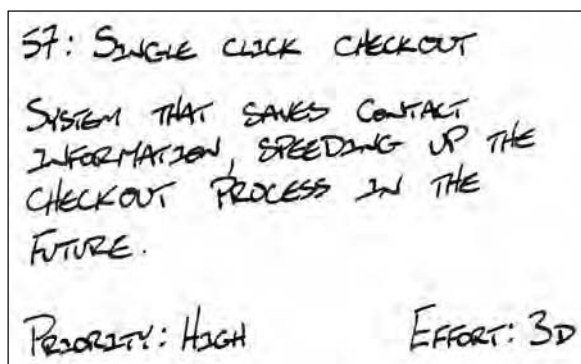 57: SINGLE CLICK CHECKOUT
SYSTEM THAT SAVES CONTACT
INFORMATION, SPEEDING UP THE
CHECKOUT PROCESS IN THE
FUTURE.
PRIORITY: HIGH EFFORT: 3D